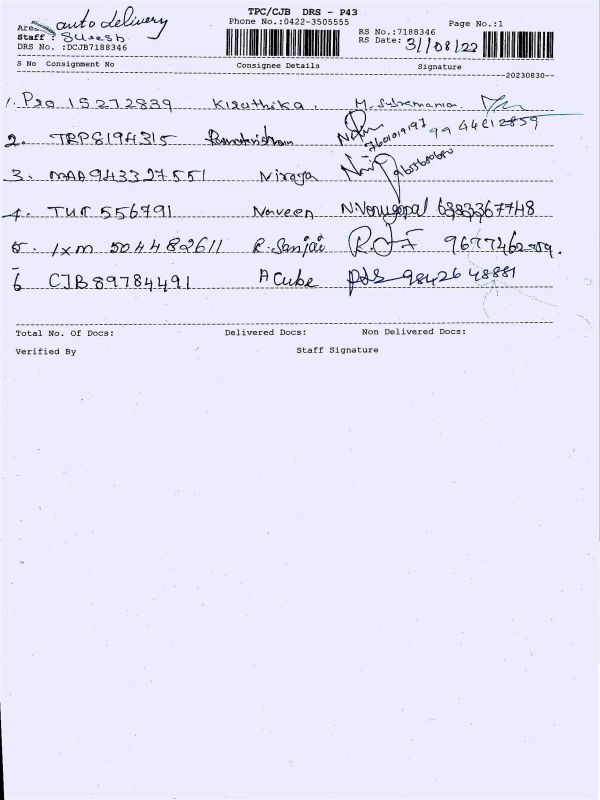 TPC/CJB DRS - P43
Area auto delivery
Phone No.:0422-3505555
Page No.:1
Staff : Suresh
RS No.:7188346
DRS No. :DCJB7188346
RS Date: 31/08/22
S No Consignment No Consignee Details Signature
20230830
1. Pro 15272839 Kiruthika. M. Subramania.
2. TRP8194315 7601019197 9944612859
3. MAA943327551 Niraja 9655680680
4. TUT 556791 Naveen N.Venugopal 6383367748
5. Ixm 504482611 R. Sanjai 9677462759.
6 CJB89784491 A Cube 9842648881
Total No. Of Docs: Delivered Docs: Non Delivered Docs:
Verified By Staff Signature